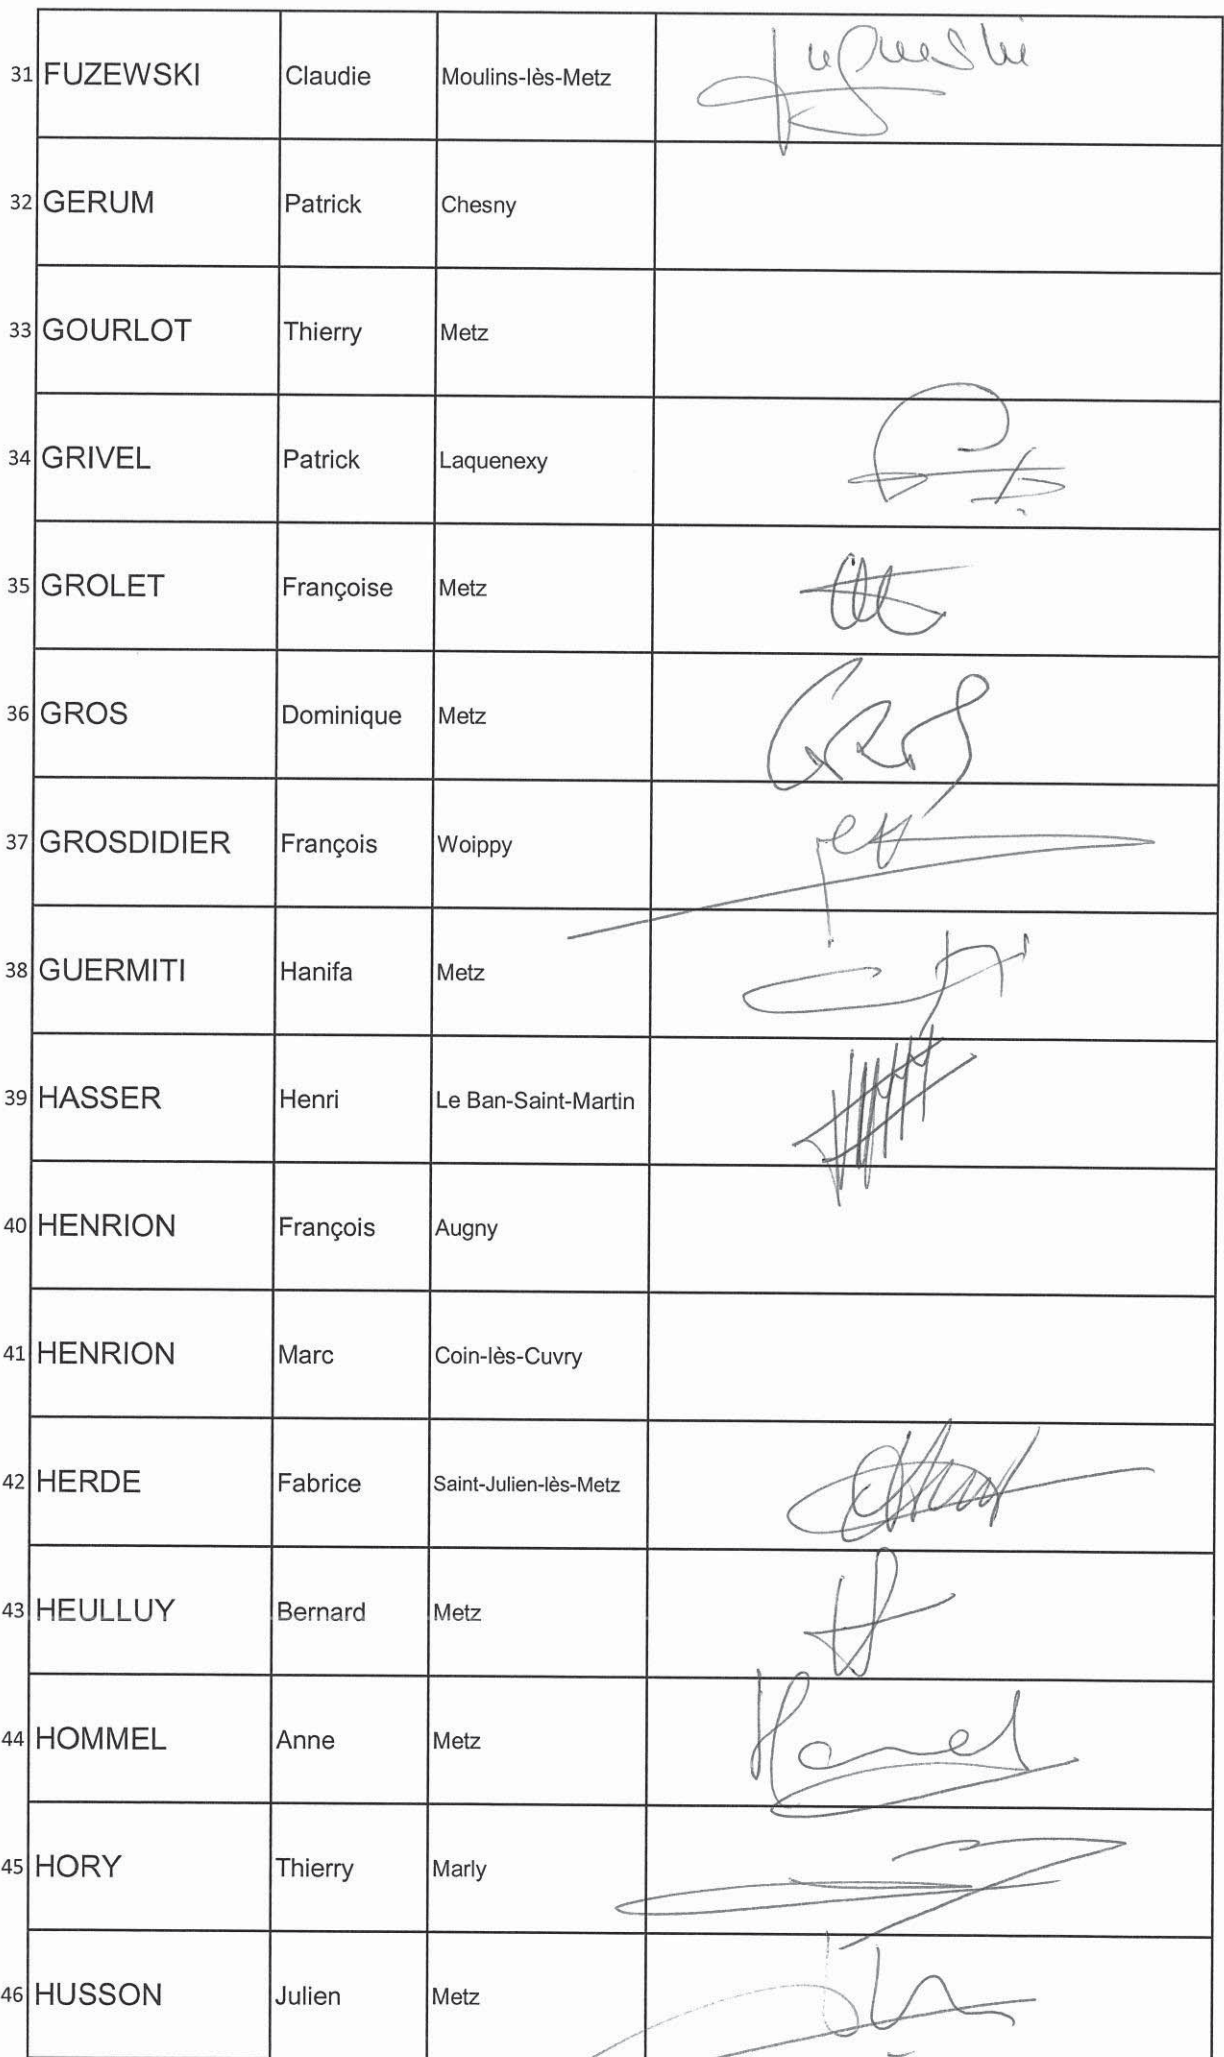 31 FUZEWSKI Claudie Moulins-lès-Metz
32 GERUM Patrick Chesny
33 GOURLOT Thierry Metz
34 GRIVEL Patrick Laquenexy
35 GROLET Françoise Metz
36 GROS Dominique Metz GROS
37 GROSDIDIER François Woippy
38 GUERMITI Hanifa Metz
39 HASSER Henri Le Ban-Saint-Martin
40 HENRION François Augny
41 HENRION Marc Coin-lès-Cuvry
42 HERDE Fabrice Saint-Julien-lès-Metz
43 HEULLUY Bernard Metz
44 HOMMEL Anne Metz
45 HORY Thierry Marly
46 HUSSON Julien Metz